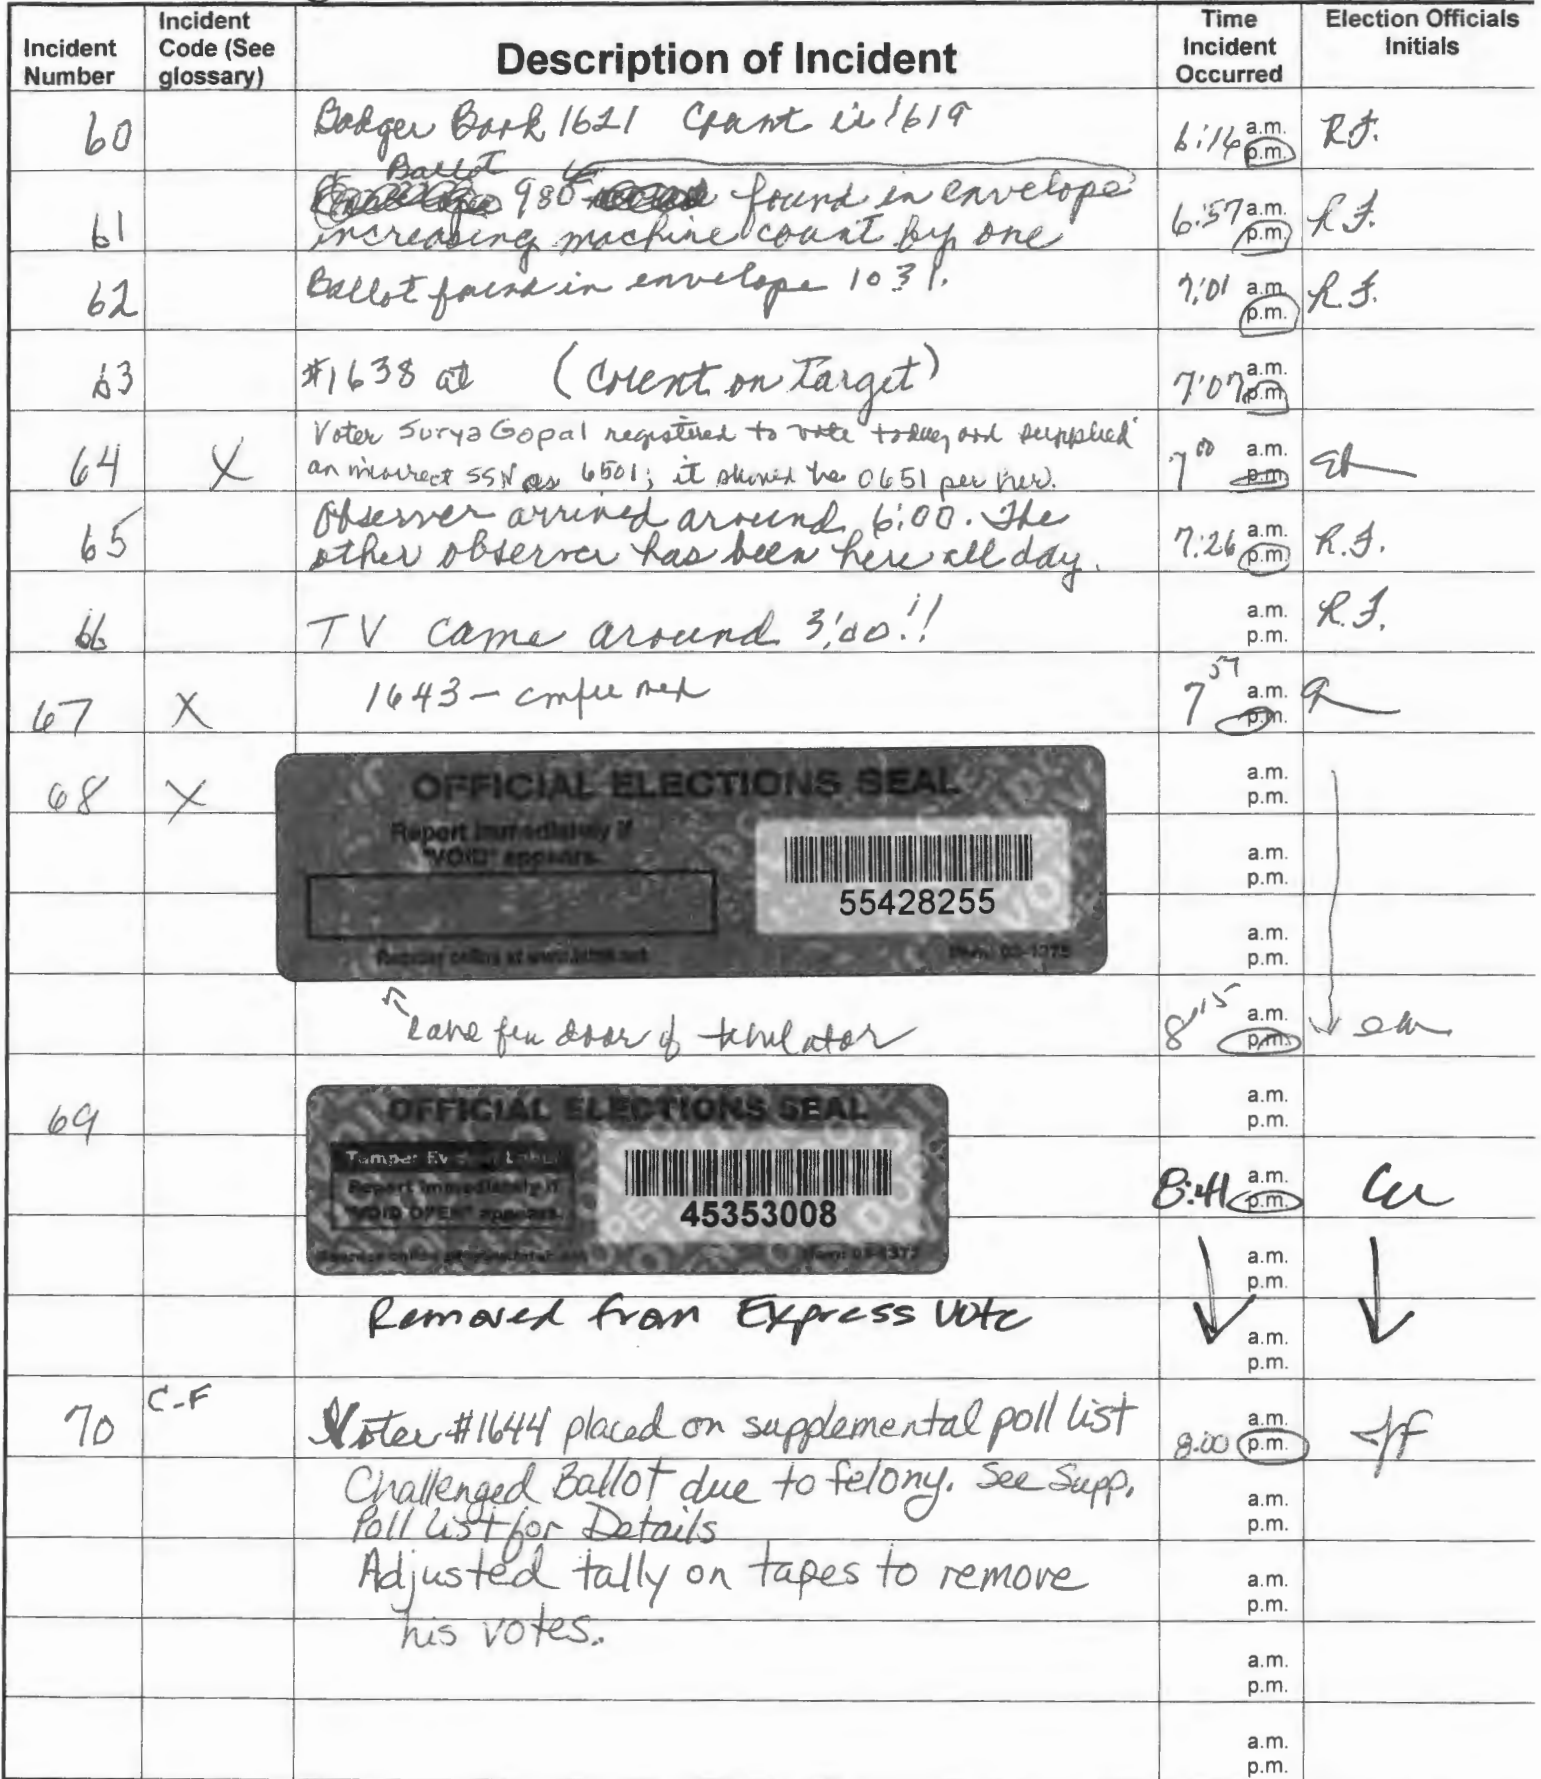 Incident Number
Incident Code (See glossary)
Description of Incident
Time Incident Occurred
Election Officials Initials
60 Badger Book 1621 Count is 1619 6:16 a.m. p.m. R.F.
Ballot
61 980 found in envelope 6:57 a.m. p.m. R.F.
increasing machine count by one
62 Ballot found in envelope 1031. 7:01 a.m. p.m. R.F.
63 #1638 at (Count on Target) 7:07 a.m. p.m.
64 X Voter Surya Gopal registered to vote today and supplied 7 00 a.m. p.m.
an incorrect SSN as 6501; it should be 0651 per her.
65 Observer arrived around 6:00. The 7:26 a.m. p.m. R.F.
other observer has been here all day.
66 TV came around 3:00!! a.m. p.m. R.F.
67 X 1643 - confirmed 7 57 a.m. p.m.
68 X a.m. p.m.
OFFICIAL ELECTIONS SEAL
Report immediately if
"VOID" appears.
55428255
a.m. p.m.
a.m. p.m.
door of tabulator 8:15 a.m. p.m.
69 a.m. p.m.
OFFICIAL ELECTIONS SEAL
Tamper Evident Label
Report immediately if
"VOID OPEN" appears.
45353008
8:41 a.m. p.m.
a.m. p.m.
Removed from Express Vote a.m. p.m.
70 C-F Voter #1644 placed on supplemental poll list 8:00 a.m. p.m.
Challenged Ballot due to felony. See Supp. a.m. p.m.
Poll List for Details
Adjusted tally on tapes to remove a.m. p.m.
his votes.
a.m. p.m.
a.m. p.m.